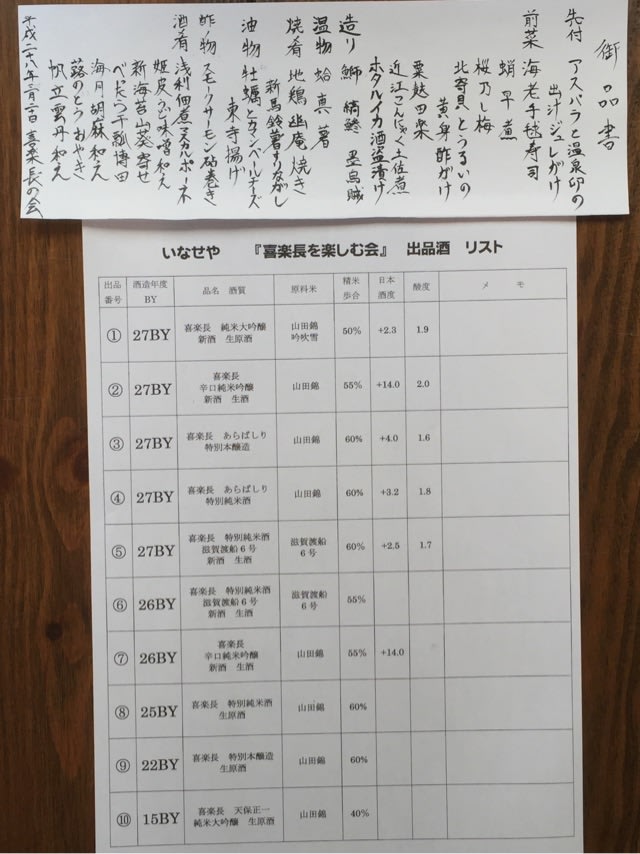 御品書
先付 アスパラと温泉卵の
出汁ジュレがけ
前菜 海老手毬寿司
蛸早煮
桜乃し梅
北寄貝とうるいの
黄身酢がけ
粟麩田楽
近江こんにゃく土佐煮
ホタルイカ酒盗漬け
造り 鰤 墨烏賊
温物 蛤真薯
新馬鈴薯すりながし
焼肴 地鶏幽庵焼き
油物 牡蠣とカマンベールチーズ
東寺揚げ
酢ノ物 スモークサーモン砧巻き
酒肴 浅利佃煮マスカルポーネ
姫皮ふど味噌和え
新海苔山葵寄せ
べったら干瓢博田
海月胡麻和え
蕗のとうおやき
帆立雲丹和え
平成二十八年二月二日 喜楽長の会
いなせや 『喜楽長を楽しむ会』 出品酒 リスト
出品番号 酒造年度BY 品名 酒質 原料米 精米歩合 日本酒度 酸度 メモ
① 27BY 喜楽長 純米大吟醸 新酒 生原酒 山田錦 吟吹雪 50% +2.3 1.9
② 27BY 喜楽長 辛口純米吟醸 新酒 生酒 山田錦 55% +14.0 2.0
③ 27BY 喜楽長 あらばしり 特別本醸造 山田錦 60% +4.0 1.6
④ 27BY 喜楽長 あらばしり 特別純米酒 山田錦 60% +3.2 1.8
⑤ 27BY 喜楽長 特別純米酒 滋賀渡船6号 新酒 生酒 滋賀渡船6号 60% +2.5 1.7
⑥ 26BY 喜楽長 特別純米酒 滋賀渡船6号 新酒 生酒 滋賀渡船6号 55%
⑦ 26BY 喜楽長 辛口純米吟醸 新酒 生酒 山田錦 55% +14.0
⑧ 25BY 喜楽長 特別純米酒 生原酒 山田錦 60%
⑨ 22BY 喜楽長 特別本醸造 生原酒 山田錦 60%
⑩ 15BY 喜楽長 天保正一 純米大吟醸 生原酒 山田錦 40%